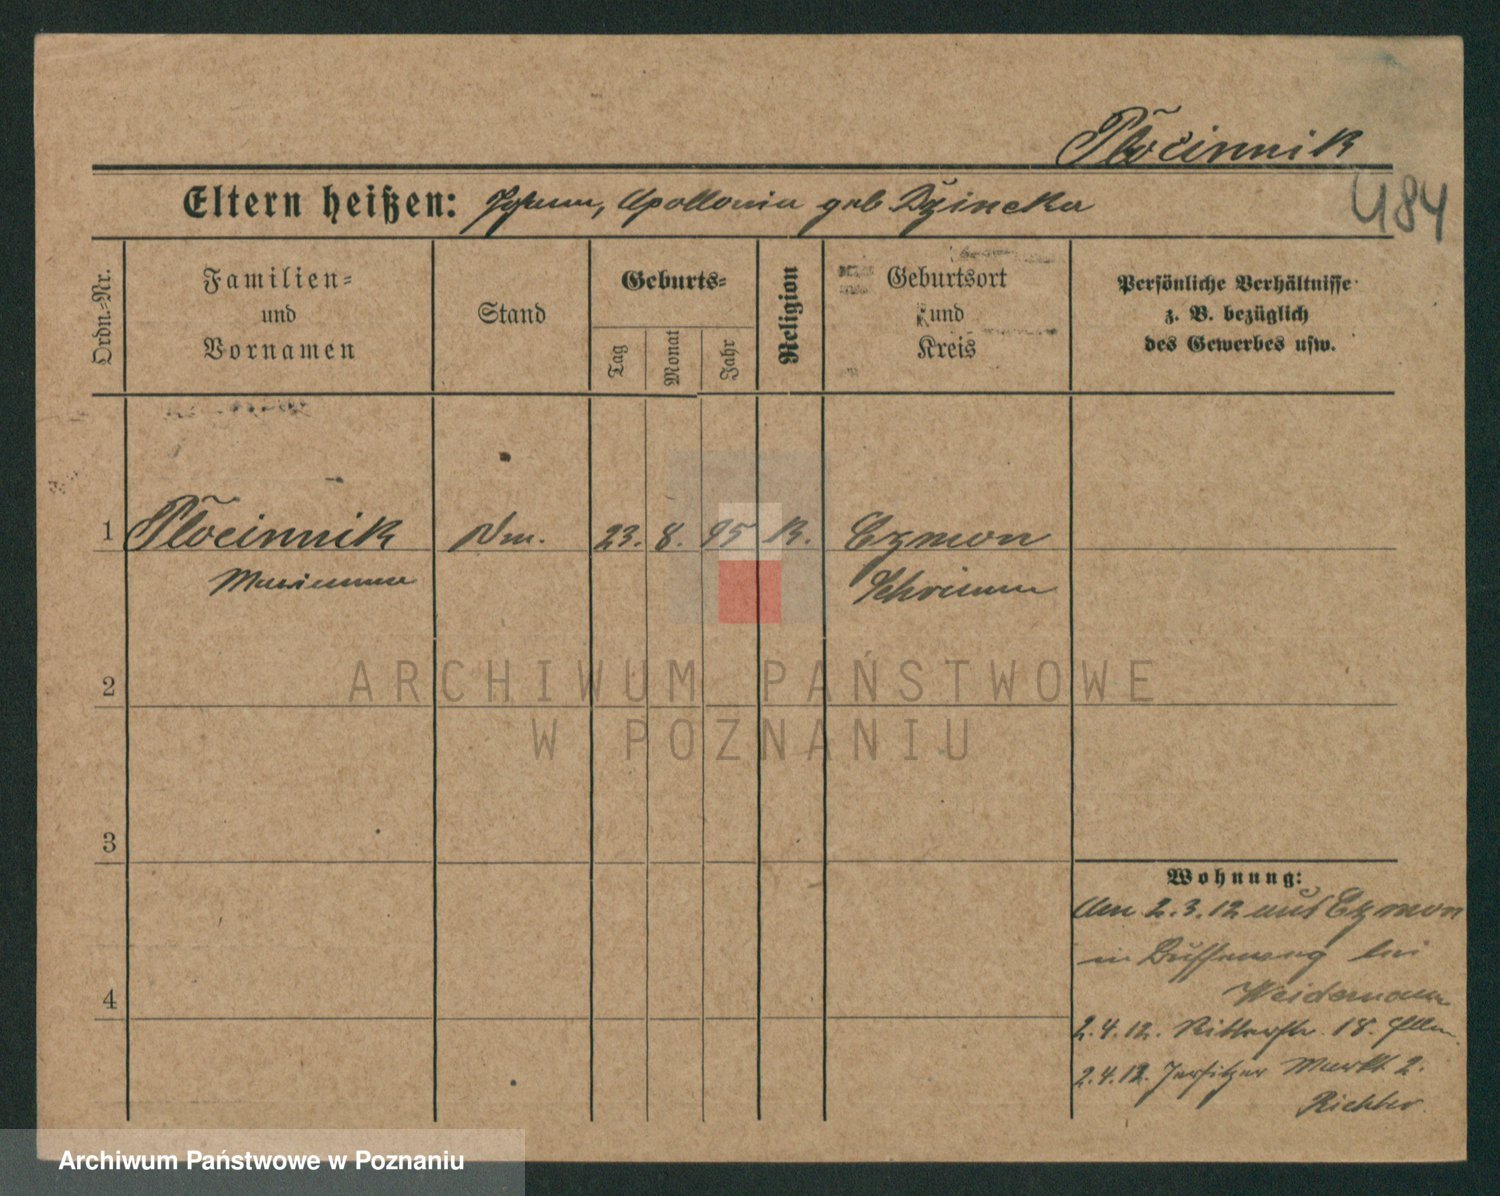 Płocinnik
484
Eltern heißen: Johann, Apollonia geb
Ordn.-Nr.
Familien-
und
Vornamen
Stand
Geburts-
Tag
Monat
Jahr
Religion
Geburtsort
und
Kreis
Persönliche Verhältnisse
z. B. bezüglich
des Gewerbes usw.
1 Płocinnik 23. 8. 95 K. Czmon
Marianna Schrimm
2
3
4
Wohnung:
Am 2.3.12 aus Czmon
in bei
Weidemann
2.4.12. Ritterstr. 18.
2.4.12. Jersitzer Markt 2.
Richter.
ARCHIWUM PAŃSTWOWE
W POZNANIU
Archiwum Państwowe w Poznaniu